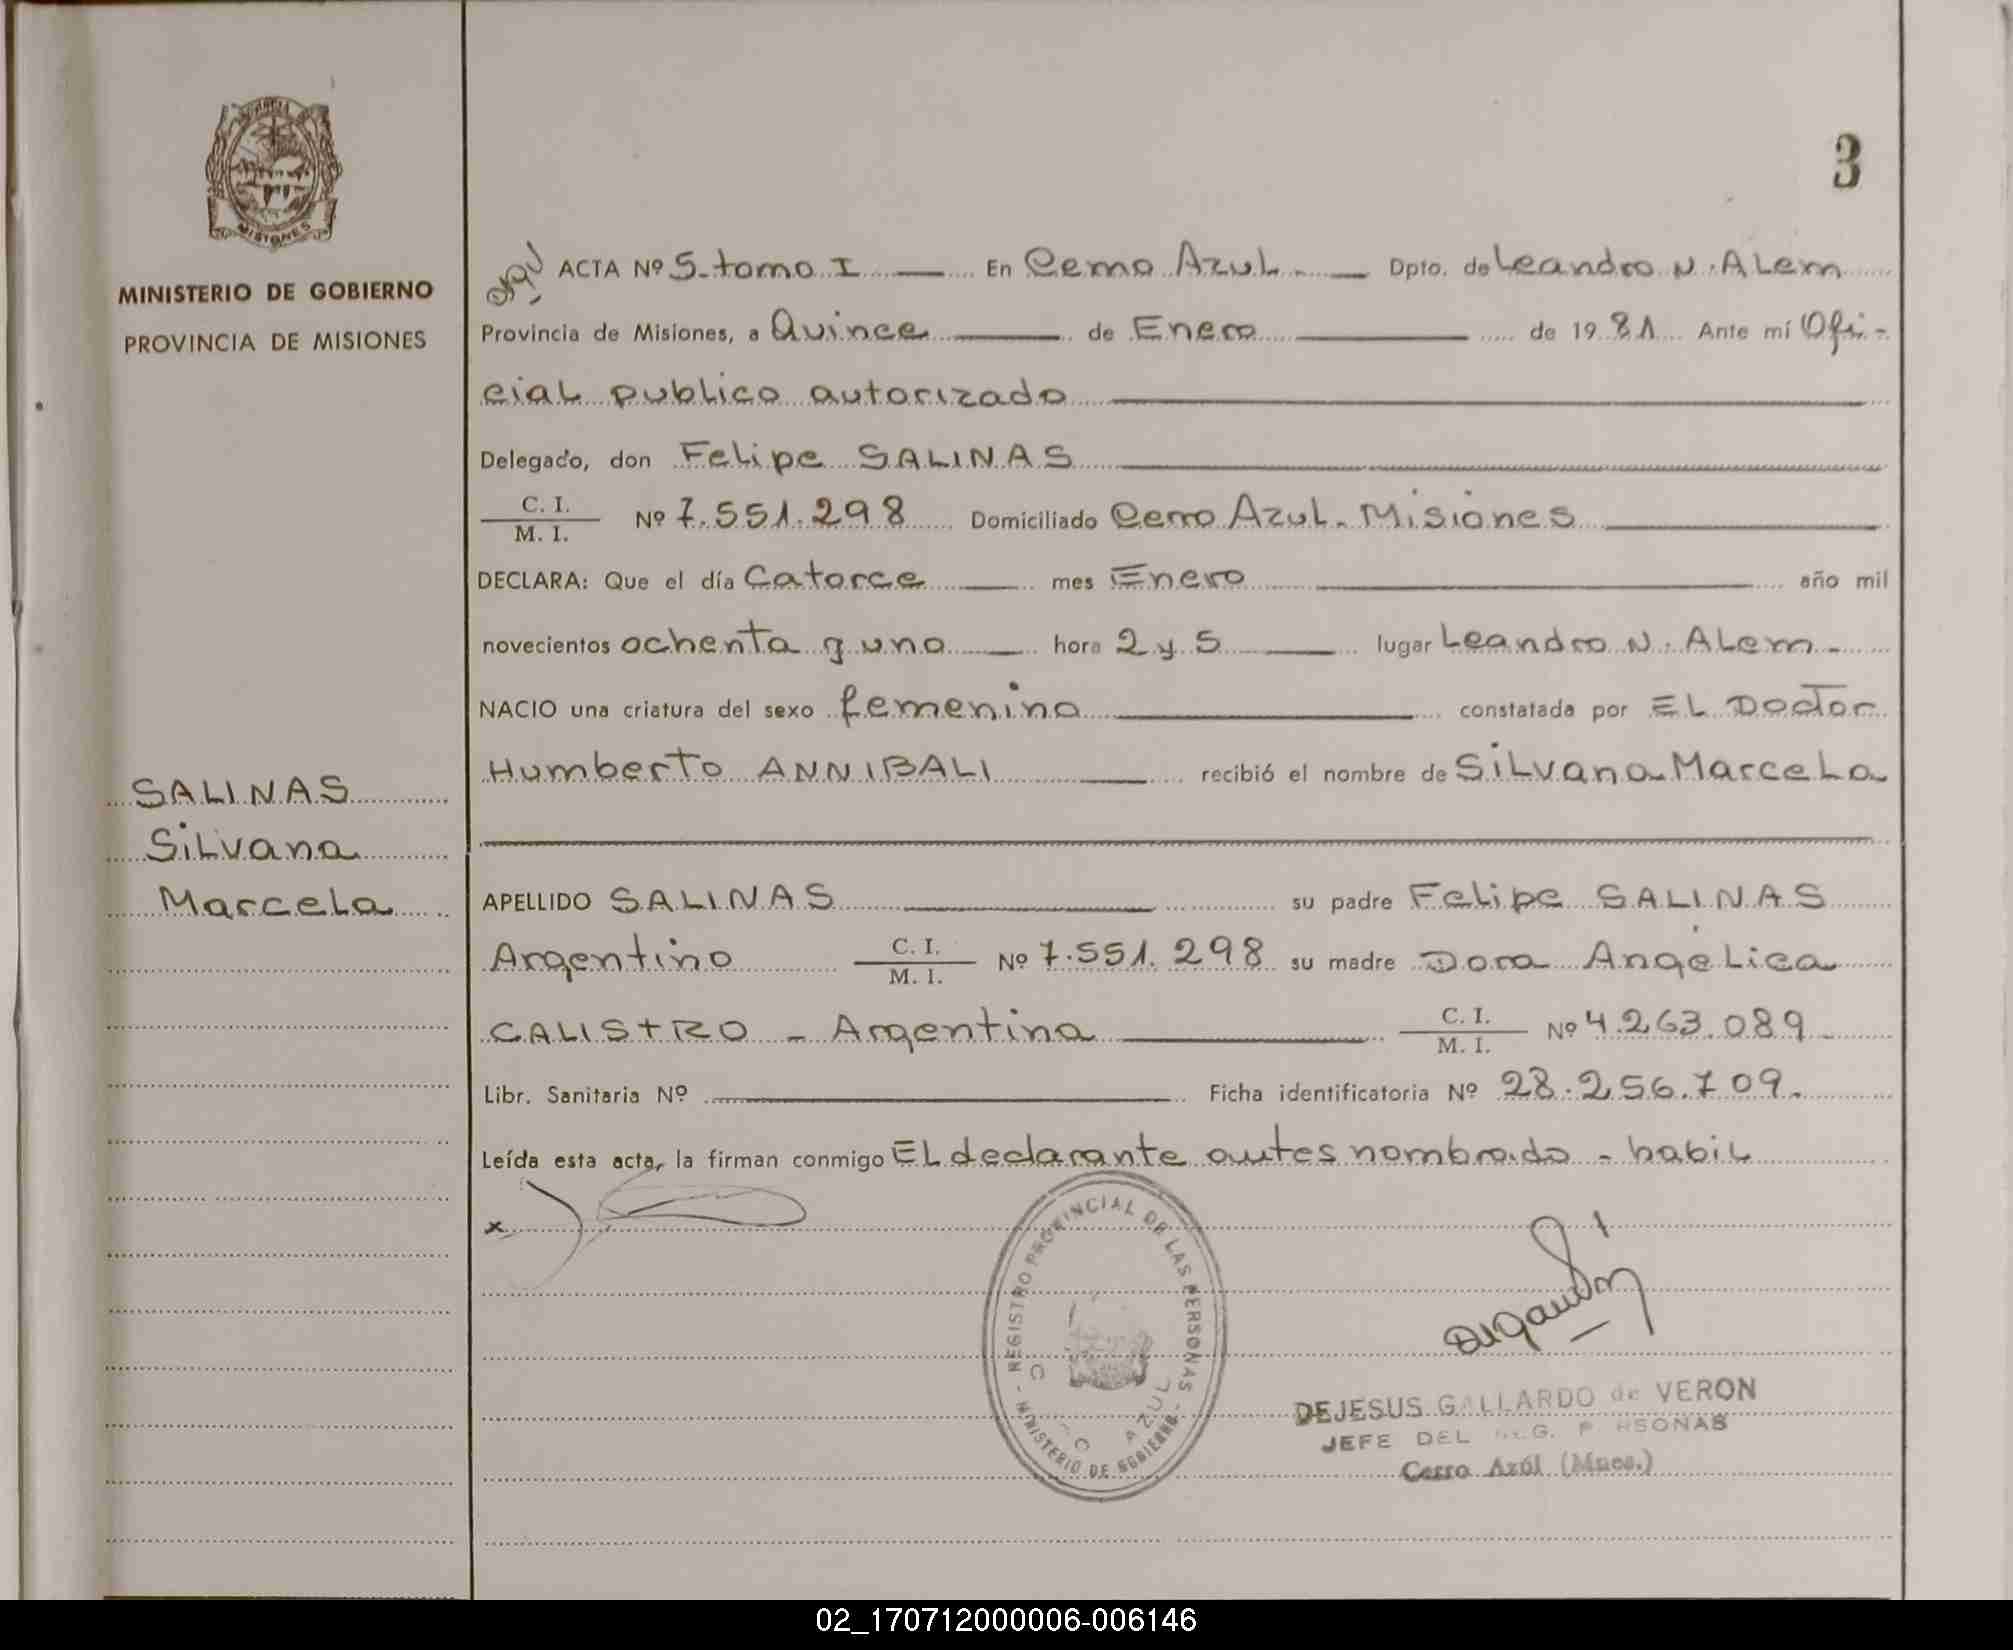 MISIONES
MINISTERIO DE GOBIERNO
PROVINCIA DE MISIONES
SALINAS
Silvana
Marcela
3
ACTA Nº 5-tomo I En Cerro Azul. Dpto. de Leandro N. Alem
Provincia de Misiones, a Quince de Enero de 1981 Ante mí Ofi-
cial publico autorizado
Delegado, don Felipe SALINAS
C. I.
M. I. Nº 7.551.298 Domiciliado Cerro Azul. Misiones
DECLARA: Que el día Catorce mes Enero año mil
novecientos ochenta y uno hora 2 y 5 lugar Leandro N. Alem.
NACIO una criatura del sexo femenino constatada por El Doctor
Humberto ANNIBALI recibió el nombre de Silvana Marcela
APELLIDO SALINAS su padre Felipe SALINAS
Argentino C. I.
M. I. Nº 7.551.298 su madre Dora Angélica
CALISTRO - Argentina C. I.
M. I. Nº 4.263.089
Libr. Sanitaria Nº Ficha identificatoria Nº 28.256.709.
Leída esta acta, la firman conmigo El declarante antes nombrado - habil
x
REGISTRO PROVINCIAL DE LAS PERSONAS
- MINISTERIO DE GOBIERNO -
AZUL
DEJESUS GALLARDO de VERON
JEFE DEL REG. PERSONAS
Cerro Azúl (Mnes.)
02_170712000006-006146